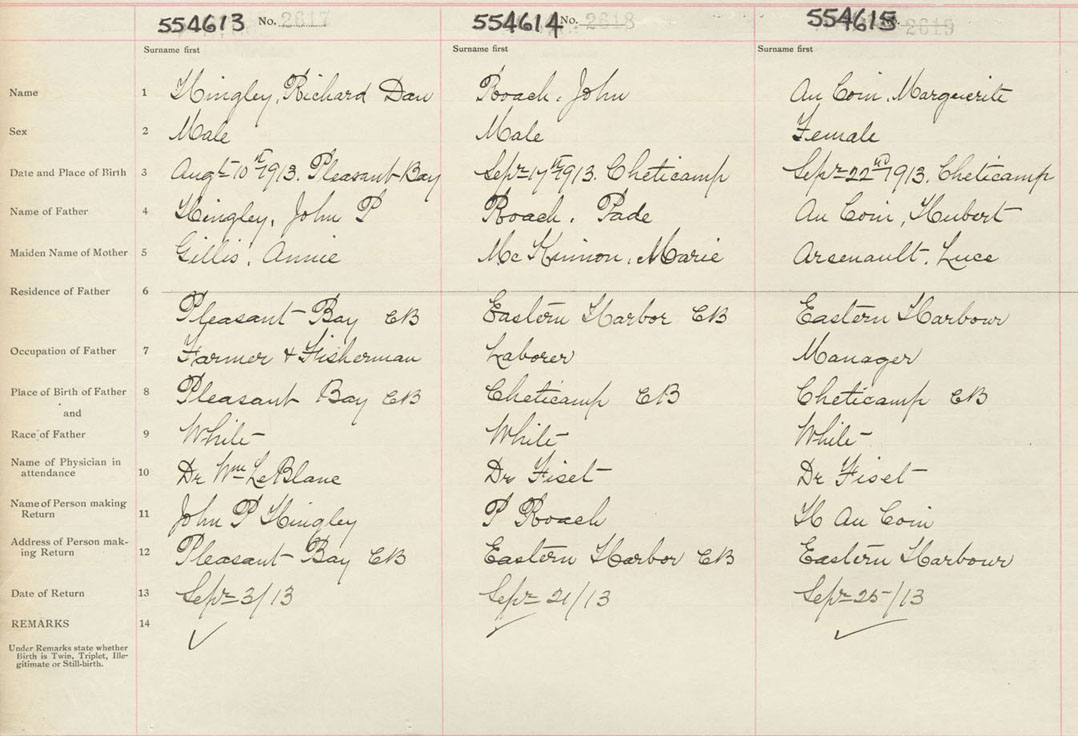 554613 No. 2617 554614 No. 2618 554615 No. 2619
Surname first Surname first Surname first
Name 1 Hingley, Richard Dan Roach, John Au Coin, Marguerite
Sex 2 Male Male Female
Date and Place of Birth 3 Augt 10th 1913. Pleasant Bay Sept 17th 1913. Cheticamp Sept 22nd 1913. Cheticamp
Name of Father 4 Hingley, John P Roach, Pade Au Coin, Hubert
Maiden Name of Mother 5 Gillis, Annie McKinnon, Marie Arsenault, Luce
Residence of Father 6 Pleasant Bay CB Eastern Harbor CB Eastern Harbour
Occupation of Father 7 Farmer + Fisherman Laborer Manager
Place of Birth of Father 8 Pleasant Bay CB Cheticamp CB Cheticamp CB
and
Race of Father 9 White White White
Name of Physician in
attendance 10 Dr Wm LeBlanc Dr Fiset Dr Fiset
Name of Person making
Return 11 John P Hingley P Roach H Au Coin
Address of Person mak-
ing Return 12 Pleasant Bay CB Eastern Harbor CB Eastern Harbour
Date of Return 13 Sept 3/13 Sept 21/13 Sept 25/13
REMARKS 14 ✓ ✓ ✓
Under Remarks state whether
Birth is Twin, Triplet, Ille-
gitimate or Still-birth.